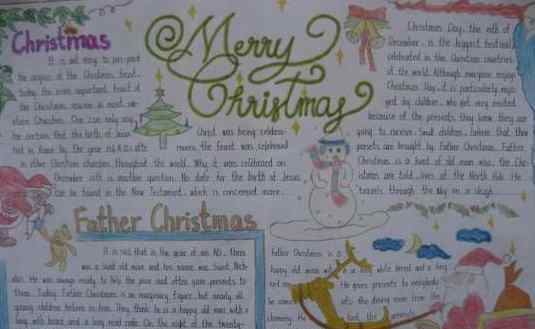 Christmas
It is not easy to pin-point
the origins of the Christmas feast,
today the most important feast of
the Christmas season in most
Christmas. One can only say
for certain that the birth of Jesus
in other Christian churches throughout the world. Why it was celebrated on
December 25th is another question. No date for the birth of Jesus
can be found in the New Testament, which is concerned more
Merry
Christmas
Christ was being celebra-
the feast was celebrated
Christmas Day, the 25th of
December, is the biggest festival
celebrated in the Christian countries
of the world. Although everyone enjoys
Christmas Day, it is particularly enjo
yed by children, who get very excited
because of the presents they know they are
going to receive. Small children believe that their
presents are brought by Father Christmas. Father
Christmas is a kind of old man who, the Chr-
istmas are told, lives at the North Pole. He
travels through the sky on a sleigh
Father Christmas
It is said that in the year of 300 AD, there
was a kind old man and his name was Saint Nich-
olas. He was always ready to help the poor and often gave presents to
them. Today, Father Christmas is an imaginary figure, but nearly all
young children believe in him. They think he is a happy old man with a
long white beard and a long red robe. On the night of the twenty-
Father Christmas is a
happy old man with a long white beard and a long
red He gives presents to everybody
he comes into the dining room from the
chimney. He the presents